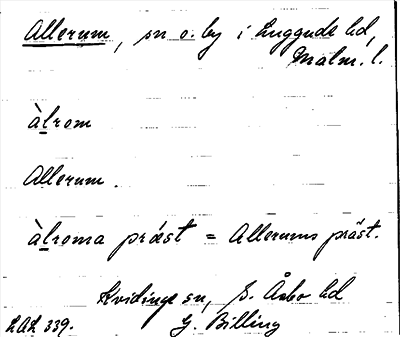 Allerum, sn o. by i Luggude hd,
Malm. l.
àlrom
Allerum.
àlroma präst = Allerums präst.
Kvidinge sn, S. Åsbo hd
LAL 339. G. Billing